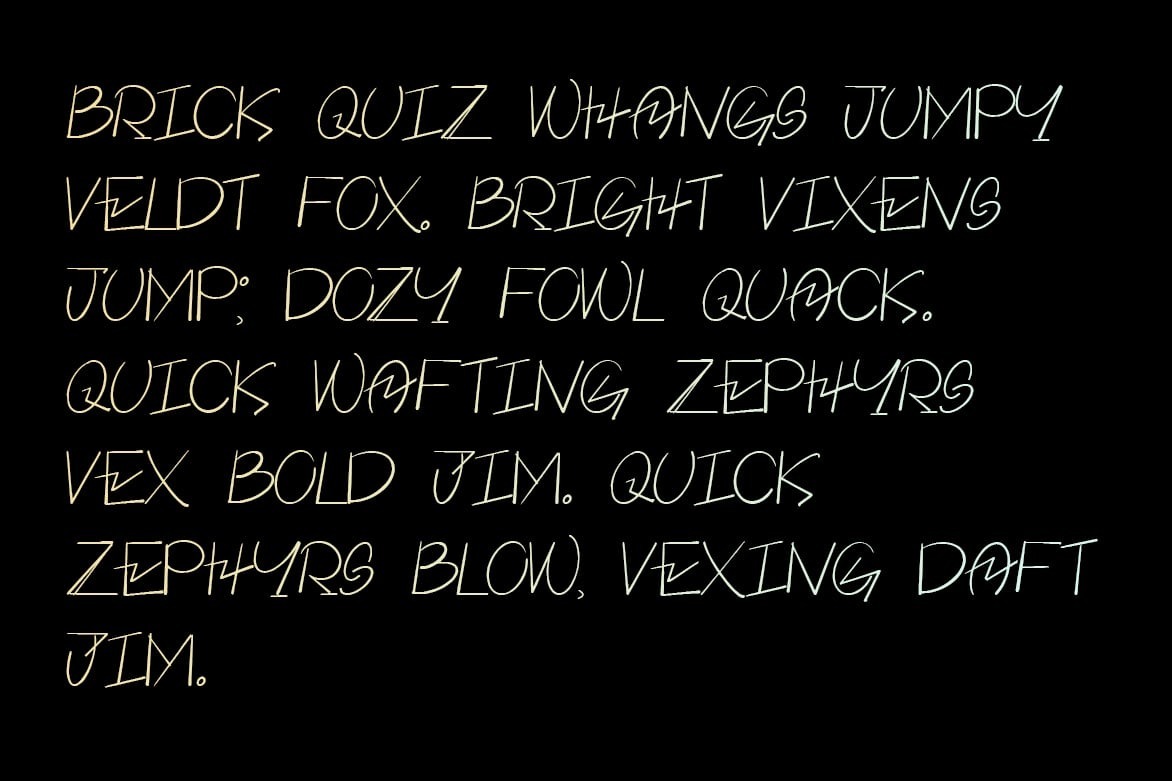 BRICK QUIZ WHANGS JUMPY
VELDT FOX. BRIGHT VIXENS
JUMP; DOZY FOWL QUACK.
QUICK WAFTING ZEPHYRS
VEX BOLD JIM. QUICK
ZEPHYRS BLOW, VEXING DAFT
JIM.